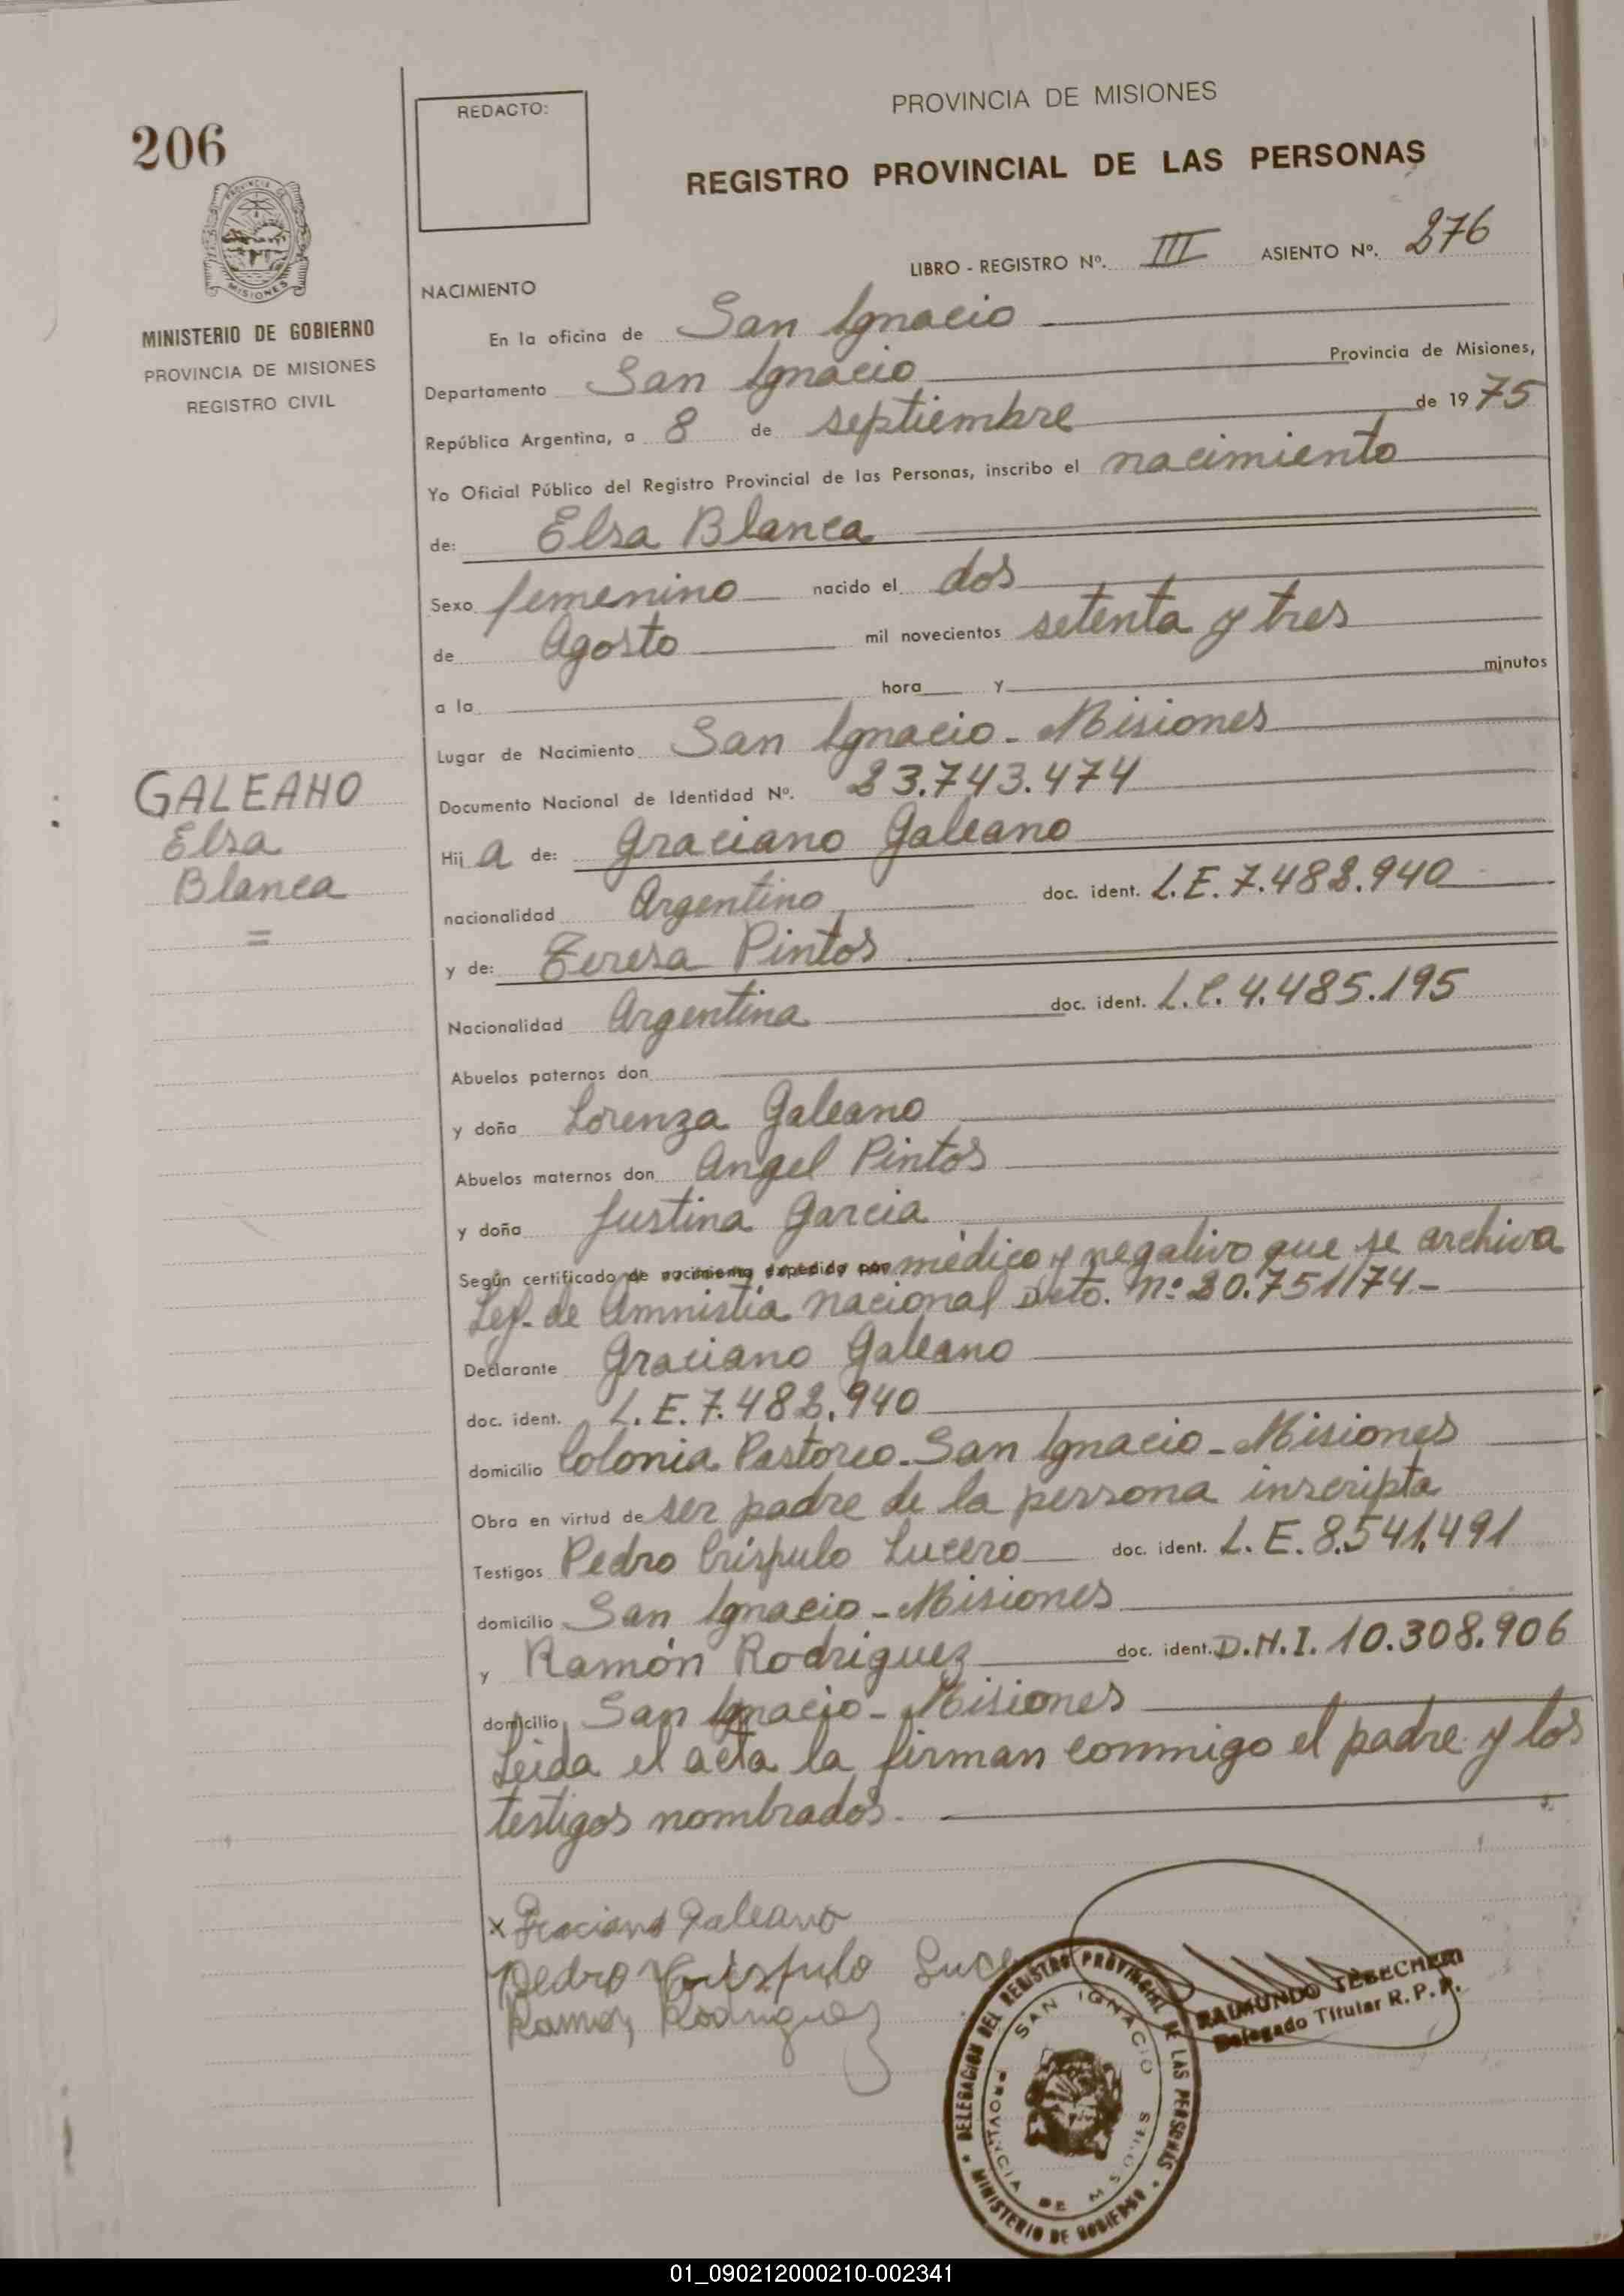 206
REDACTO:
PROVINCIA DE MISIONES
REGISTRO PROVINCIAL DE LAS PERSONAS
PROVINCIA DE
MISIONES
MINISTERIO DE GOBIERNO
PROVINCIA DE MISIONES
REGISTRO CIVIL
LIBRO - REGISTRO Nº. III ASIENTO Nº. 276
NACIMIENTO
En la oficina de San Ignacio
Departamento San Ignacio Provincia de Misiones,
República Argentina, a 8 de septiembre de 1975
Yo Oficial Público del Registro Provincial de las Personas, inscribo el nacimiento
de: Elsa Blanca
Sexo femenino nacido el dos
de Agosto mil novecientos setenta y tres
a la hora y minutos
Lugar de Nacimiento San Ignacio - Misiones
Documento Nacional de Identidad Nº. 23.743.474
GALEANO
Elsa
Blanca
=
Hij a de: Graciano Galeano
nacionalidad Argentino doc. ident. L.E. 7.482.940
y de: Teresa Pintos
Nacionalidad Argentina doc. ident. L.C. 4.485.195
Abuelos paternos don
y doña Lorenza Galeano
Abuelos maternos don Angel Pintos
y doña Justina Garcia
Según certificado de nacimiento expedido por médico y negativo que se archiva
Ley de Amnistia nacional Dcto. nº 20.751/74.-
Declarante Graciano Galeano
doc. ident. L.E. 7.482.940
domicilio Colonia Pastoreo - San Ignacio - Misiones
Obra en virtud de ser padre de la persona inscripta
Testigos Pedro Crispulo Lucero doc. ident. L.E. 8.541.491
domicilio San Ignacio - Misiones
y Ramón Rodriguez doc. ident. D.N.I. 10.308.906
domicilio San Ignacio - Misiones
Leida el acta la firman conmigo el padre y los
testigos nombrados.
x Graciano Galeano
Pedro Crispulo Luce
Ramon Rodriguez
DELEGACION DEL REGISTRO PROVINCIAL DE LAS PERSONAS
SAN IGNACIO
PROVINCIA DE MISIONES
MINISTERIO DE GOBIERNO
RAIMUNDO TEBECHERI
Delegado Titular R. P. P.
01_090212000210-002341